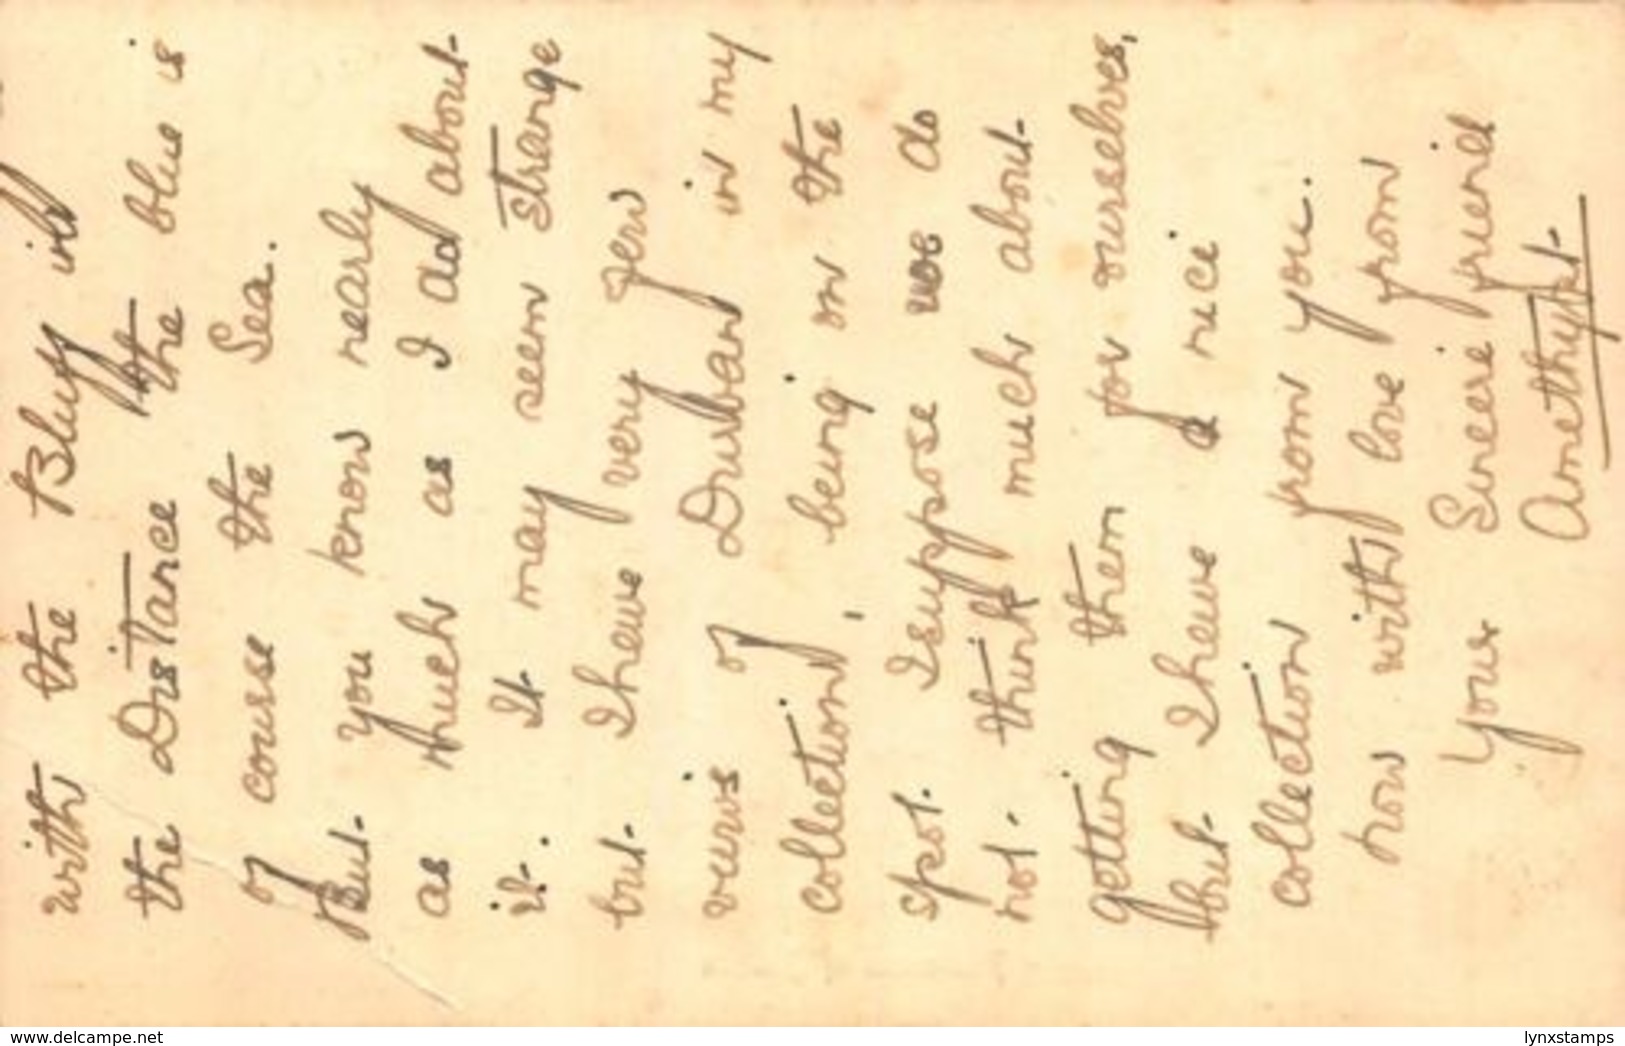 with the Bluff in
the Distance the blue is
of course the Sea.
But you know nearly
as much as I do about
it. It may seem strange
but I have very few
veiws of Durban in my
collection, being on the
spot. I suppose we do
not think much about
getting them for ourselves,
but I have a nice
collection from you.
now with love from
your Sincere friend
Amethyst.
delcampe.net
lynxstamps